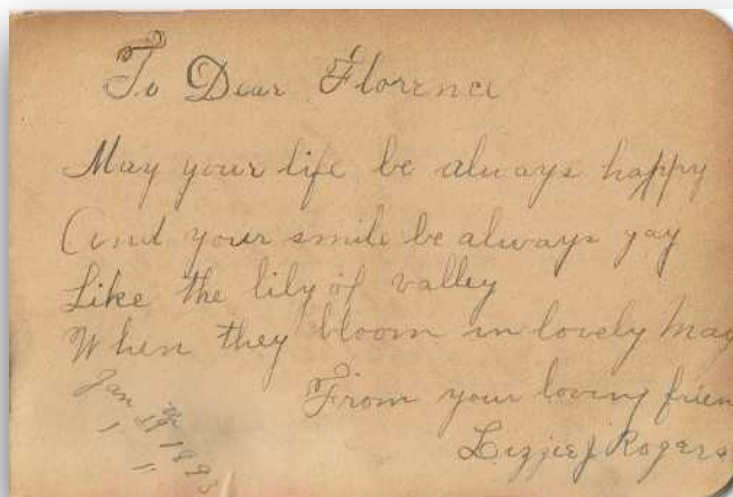 To Dear Florence
May your life be always happy
And your smile be always gay
Like the lily of valley
When they bloom in lovely May
From your loving frien
Lizzie J Rogers
Jan
th
1893